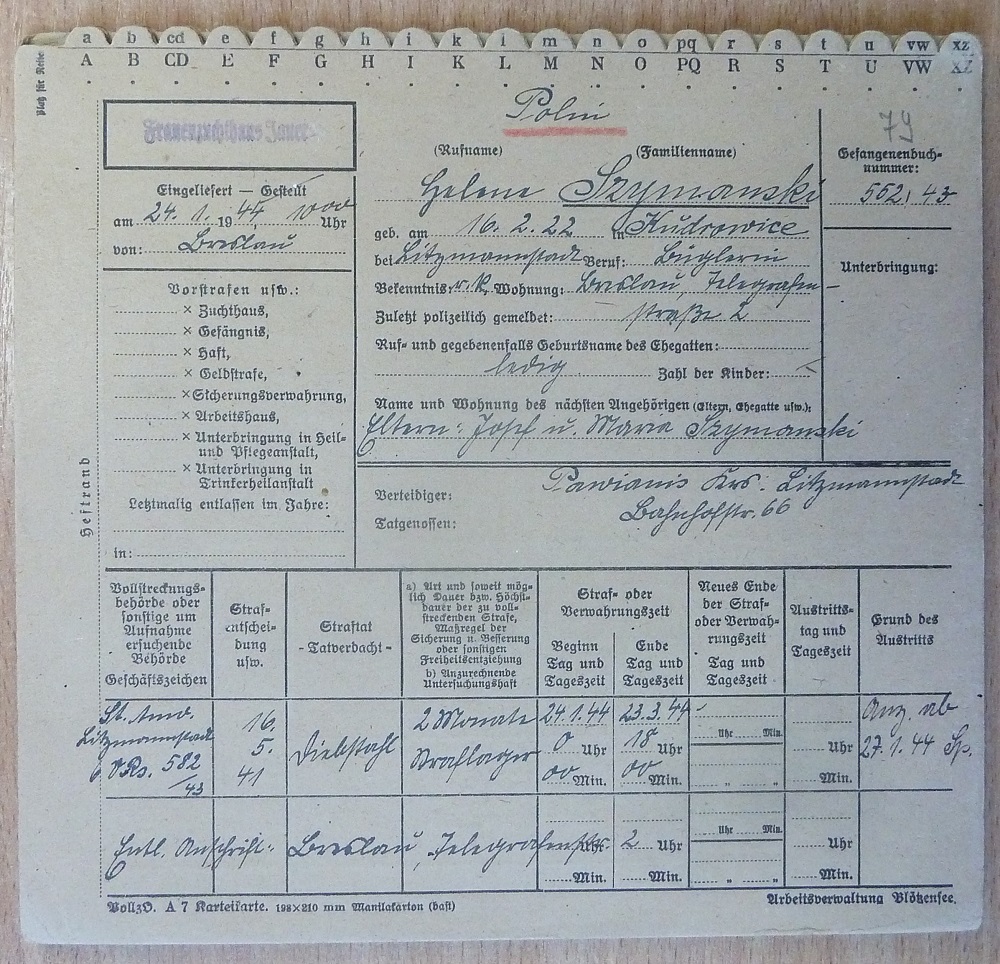 a b cd e f g h i k l m n o pq r s t u vw xz
A B CD E F G H I K L M N O PQ R S T U VW XZ
Platz für Reiter
Polin
79
Frauenzuchthaus Jauer
(Rufname) (Familienname)
Helene Szymanski
Gefangenenbuch-
nummer:
562/43
Eingeliefert — Gestellt
am 24. 1. 1944, 10⁰⁰ Uhr
von: Breslau
geb. am 16. 2. 22 in Kudrowice
bei Litzmannstadt Beruf: Büglerin
Bekenntnis: r. k. Wohnung: Breslau, Telegrafen-
Zuletzt polizeilich gemeldet: straße 2
Ruf- und gegebenenfalls Geburtsname des Ehegatten:
ledig Zahl der Kinder:
Name und Wohnung des nächsten Angehörigen (Eltern, Ehegatte usw.):
Eltern: Josef u. Maria Szymanski
Unterbringung:
Vorstrafen usw.:
× Zuchthaus,
× Gefängnis,
× Haft,
× Geldstrafe,
× Sicherungsverwahrung,
× Arbeitshaus,
× Unterbringung in Heil-
und Pflegeanstalt,
× Unterbringung in
Trinkerheilanstalt
Letztmalig entlassen im Jahre:
in:
Heftrand
Pawianis Krs. Litzmannstadt
Verteidiger:
Bahnhofstr. 66
Tatgenossen:
Vollstreckungs-
behörde oder
sonstige um
Aufnahme
ersuchende
Behörde
Geschäftszeichen
Straf-
entschei-
dung
usw.
Straftat
- Tatverdacht -
a) Art und soweit mög-
lich Dauer bzw. Höchst-
dauer der zu voll-
streckenden Strafe,
Maßregel der
Sicherung u. Besserung
oder sonstigen
Freiheitsentziehung
b) Anzurechnende
Untersuchungshaft
Straf- oder
Verwahrungszeit
Beginn
Tag und
Tageszeit
Ende
Tag und
Tageszeit
Neues Ende
der Straf-
oder Verwah-
rungszeit
Tag und
Tageszeit
Austritts-
tag und
Tageszeit
Grund des
Austritts
St. Anw.
Litzmannstadt
6 Rs. 582
/43
16.
5.
41
Diebstahl
2 Monate
Straflager
24.1.44
0 Uhr
00 Min.
23.3.44
18 Uhr
00 Min.
Uhr Min.
" "
Uhr
Min.
Anz. ab
27.1.44 Sp.
Entl. Anschrift: Breslau, Telegrafenstr. 2
Uhr Uhr
Min. Min.
Uhr Min.
" "
Uhr
Min.
VollzO. A 7 Karteikarte. 198×210 mm Manilakarton (bast)
Arbeitsverwaltung Plötzensee.